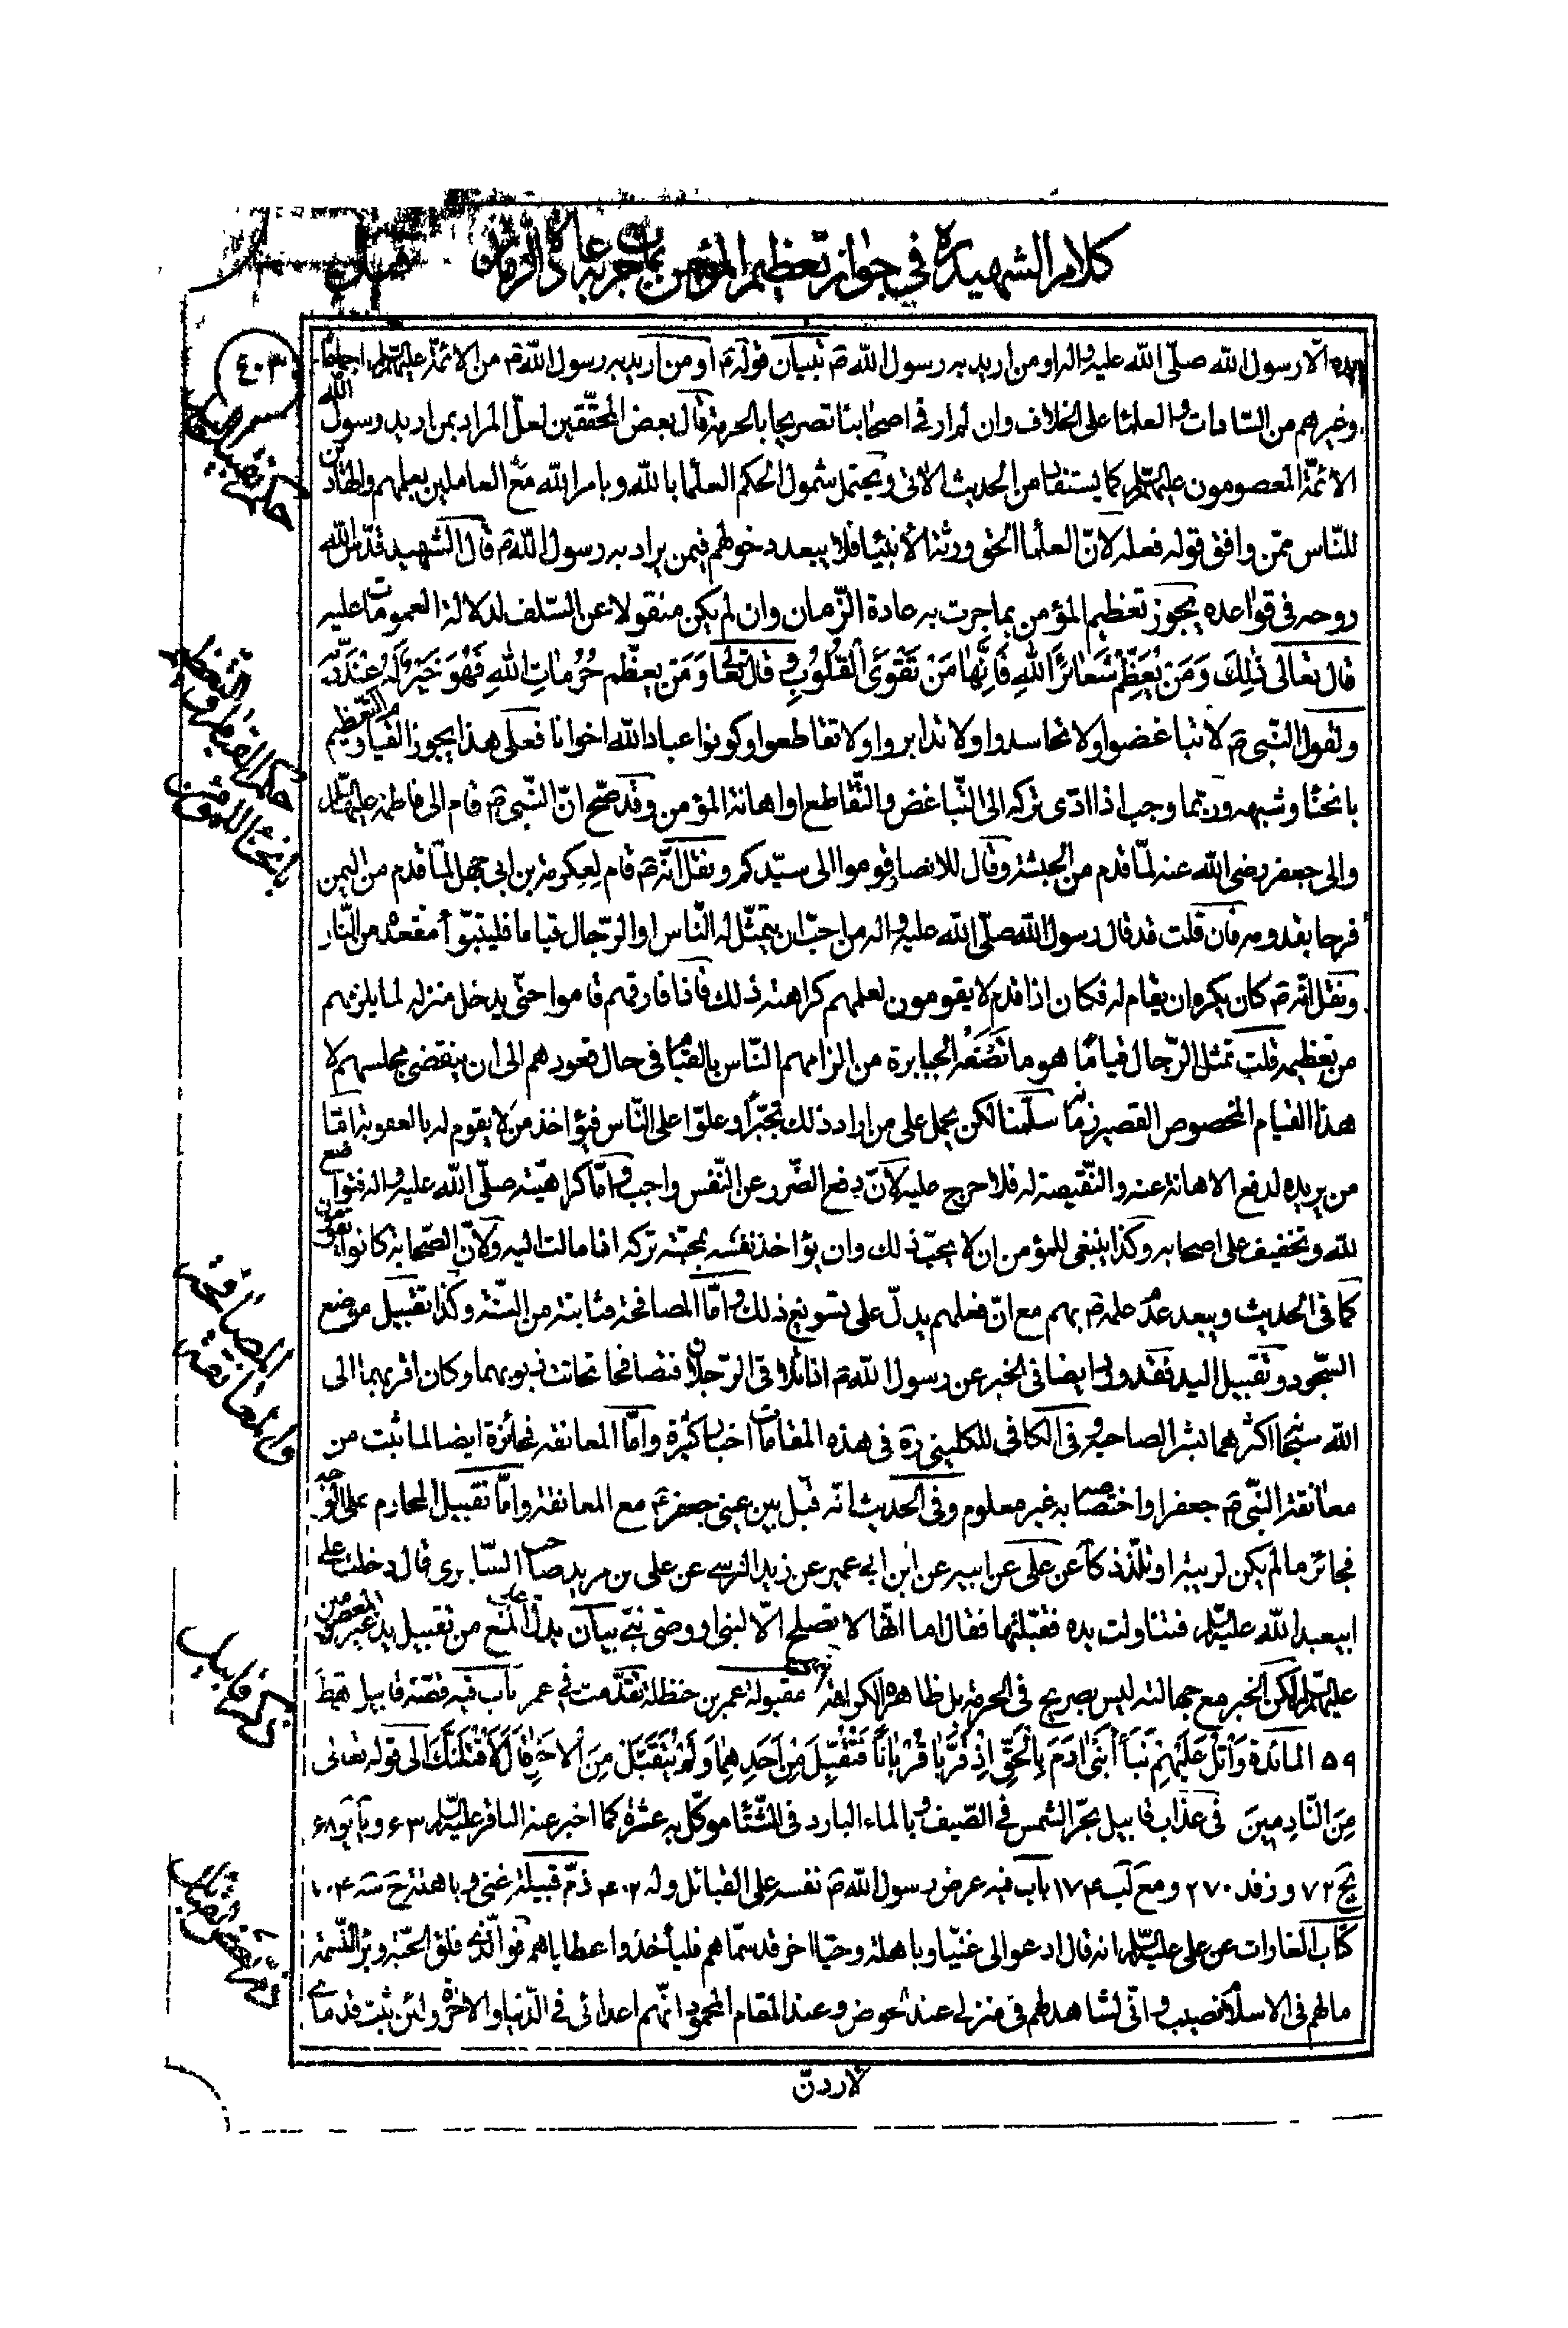 كلام الشهيد ره في جواز تعظيم المؤمن بما جرت به عادة الزمان
٤٠٣
يده الّا رسول الله صلّى الله عليه واله او من اريد به رسول الله ص بيان قوله ع او من اريد به رسول الله ص من الائمّة عليهم السلام اجماعًا
وغيرهم من السّادات والعلماء على الخلاف وان لم ار في اصحابنا تصريحا بالحرمة قال بعض المحقّقين لعلّ المراد بمن اريد به رسول الله
الائمّة المعصومون عليهم السلام كما يستفاد من الحديث الاتى ويحتمل شمول الحكم العلماء بالله وبامر الله مع العاملين بعلمهم والهادين
للنّاس ممّن وافق قوله فعله لانّ العلماء الحق ورثة الانبياء فلا يبعد دخولهم فيمن يراد به رسول الله ص قال الشهيد قدّس الله
روحه فى قواعده يجوز تعظيم المؤمن بما جرت به عادة الزّمان وان لم يكن منقولا عن السّلف لدلالة العمومات عليه
قال تعالى ذٰلِكَ وَمَنْ يُعَظِّمْ شَعائِرَ اللهِ فَاِنَّها مِنْ تَقْوَى الْقُلُوبِ وقال تعالى وَمَنْ يُعَظِّم حُرُماتِ اللهِ فَهُوَ خَيْرٌ لَهُ عِنْدَ رَبِّه
ولقول النّبى ص لا تباغضوا ولا تحاسدوا ولا تدابروا ولا تقاطعوا وكونوا عباد الله اخوانا فعلى هذا يجوز القيام والتعظيم
بانحناء وشبهه وربّما وجب اذا ادّى تركه الى التّباغض والتّقاطع او اهانة المؤمن وقد صّح انّ النّبى ص قام الى فاطمة عليها السلام
والى جعفر رضى الله عنه لمّا قدم من الحبشة وقال للانصار قوموا الى سيّدكم ونقل انّه ص قام لعِكرمة بن ابى جهل لمّا قدم من اليمن
فرحا بقدومه فان قلت قد قال رسول الله صلّى الله عليه واله من احبّ ان يتمثّل له النّاس او الرّجال قياما فليتبوّأ مقعده من النّار
ونقل انّه ص كان يكره ان يقام له فكان اذا قدم لا يقومون لعلمهم كراهته ذلك فاذا فارقهم قاموا حتّى يدخل منزله لما يلزمهم
من تعظيمه قلت تمثل الرّجال قيامًا هو ما تَصْنَعُه الجبابرة من الزامهم النّاس بالقيام فى حال قعودهم الى ان ينقضى مجلسهم لا
هذا القيام المخصوص القصير زمانه سلّمنا لكن يحمل على من اراد ذلك تجبّرا وعلوّا على النّاس فيؤاخذ من لا يقوم له بالعقوبة امّا
من يريده لدفع الاهانة عنه والنّقيصة له فلا حرج عليه لانّ دفع الضّرر عن النّفس واجب وامّا كراهيّته صلّى الله عليه واله فتواضع
لله وتخفيف على اصحابه وكذا ينبغى للمؤمن ان لا يحبّ ذلك وان يؤاخذ نفسه بمحبّة تركه اذا مالت اليه ولانّ الصّحابة كانوا يقومون
كما فى الحديث ويبعد عدم علمه ص بهم مع انّ فعلهم يدلّ على تسويغ ذلك وامّا المصافحة فثابتة من السّنّة وكذا تقبيل موضع
السّجود وتقبيل اليد فقد ورد ايضا فى الخبر عن رسول الله ص اذا تلاقى الرّجلان فتصافحا تحاتت ذنوبهما وكان اقربهما الى
الله سبحانه اكثرهما بشرا لصاحبه وفى الكافى للكلينى ره فى هذه المقامات اخبار كثيرة وامّا المعانقة فجائزة ايضا لما ثبت من
معانقة النّبى ص جعفرا واختصاصه به غير معلوم وفى الحديث انّه قبّل بين عينى جعفر ع مع المعانقة وامّا تقبيل المحارم على الوجه
فجائز ما لم يكن لريبة او تلذّذ كا عن على عن ابيه عن ابن ابى عمير عن زيد النرسى عن على بن مزيد صاحب السّابرى قال دخلت على
ابيعبد الله عليه السلام فتناولت يده فقبّلتها فقال اما انّها لا تصلح الّا لنبى او وصى نبى بيان يدلّ على المنع من تقبيل يد غير المعصومين
عليهم السلام لكن الخبر مع جهالته ليس بصريح فى الحرمة بل ظاهره الكراهة مقبولة عمر بن حنظلة تقدّمت فى عمر باب فيه قصّة قابيل
٥٩ المائدة وَاتْلُ عَلَيْهِمْ نَبَأَ ابْنَىْ اٰدَمَ بِالْحَقِّ اِذْ قَرَّبا قُرْبانًا فَتُقُبِّلَ مِنْ اَحَدِهِما وَلَمْ يُتَقَبَّلْ مِنَ الْاٰخَرِ قالَ لَاَقْتُلَنَّكَ الى قوله تعالى
مِنَ النّادِمِينَ فى عذاب قابيل بحرّ الشمس فى الصّيف وبالماء البارد فى الشّتاء موكّل به عشرة كما اخبر عنه الباقر عليه السلام
٧٢ و زفد ٢٧٠ ومع لب ١٧٤ باب فيه عرض رسول الله ص نفسه على القبائل ذمّ قبيلة غنى وباهلة
كتاب الغارات عن على عليه السلام انه قال ادعوا الى غنيّا وباهلة وحيّا اخر قد سمّاهم فليأخذوا عطاياهم فوالّذى فلق الحبّة وبرأ النّسمة
ما لهم فى الاسلام نصيب وانّى لشاهد لهم فى منزلى عند الحوض وعند المقام المحمود انّهم اعدائى فى الدّنيا والاخرة ولئن ثبت قدماى
لاردنّ
حكم القيام والتعظيم
بانحناء للمؤمن
المصافحة
والمعانقة
ذكر قابيل